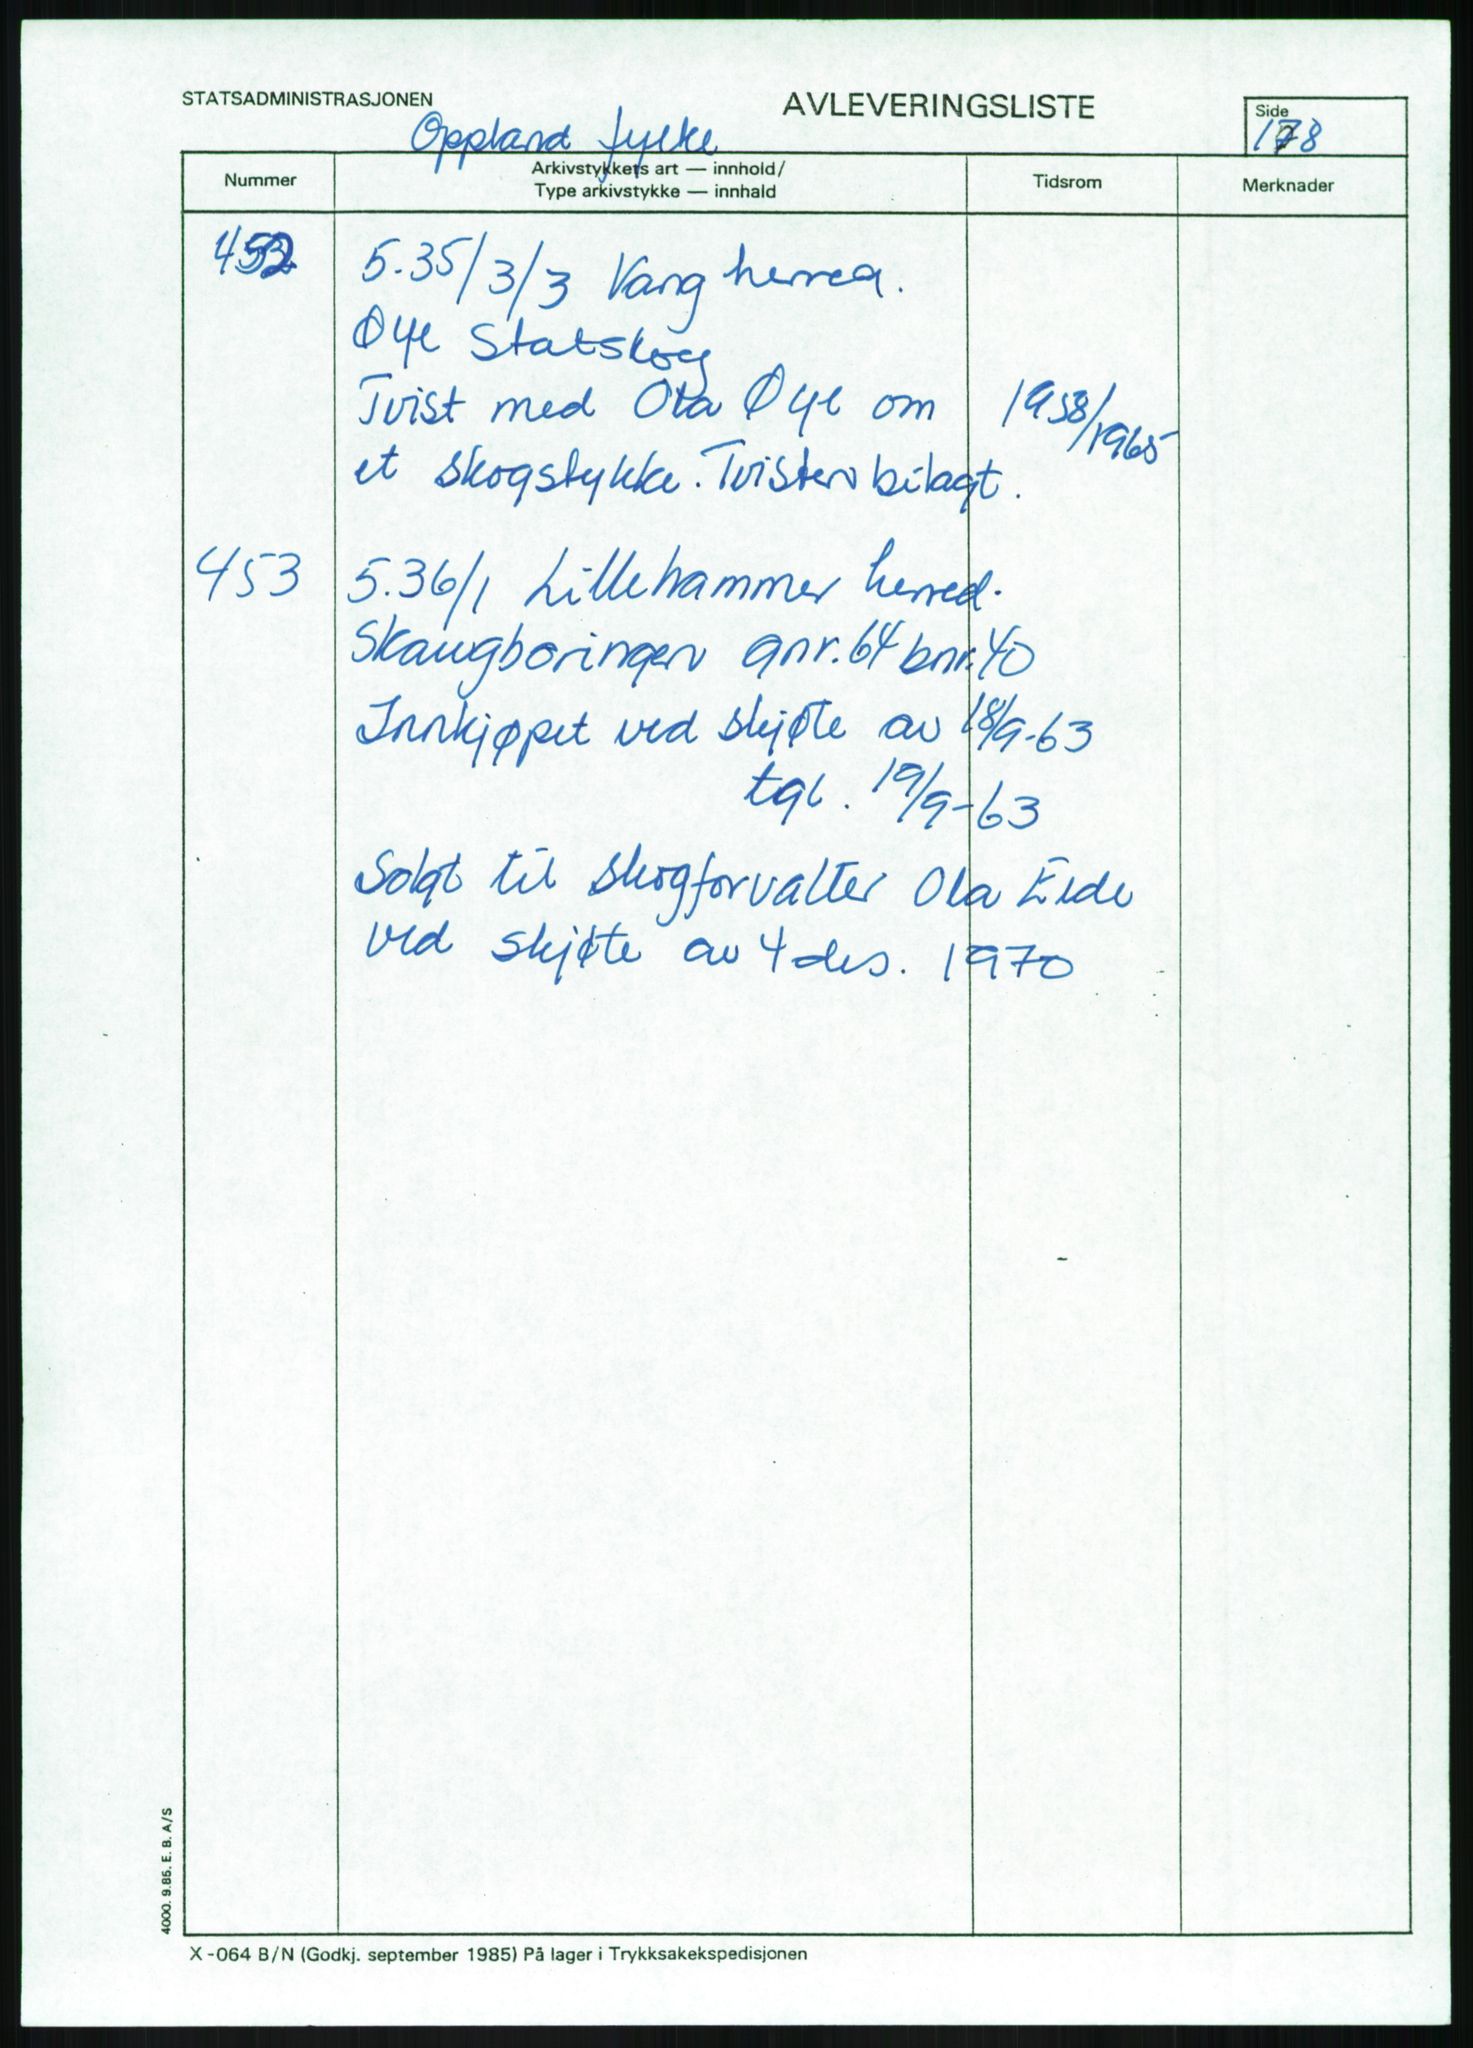 STATSADMINISTRASJONEN
AVLEVERINGSLISTE
Side
178
Oppland fylke
Nummer
Arkivstykkets art — innhold/
Type arkivstykke — innhald
Tidsrom
Merknader
452 5.35/3/3 Vang herred.
Øye Statskog
Tvist med Ola Øye om 1958/1965
et skogstykke. Tvisten bilagt.
453 5.36/1 Lillehammer herred.
Skaugboringen gnr. 64 bnr. 40
Innkjøpet ved skjøte av 18/9-63
tgl. 19/9-63
Solgt til skogforvalter Ola Eide
ved skjøte av 4 des. 1970
4000. 9.85. E. B. A/S
X-064 B/N (Godkj. september 1985) På lager i Trykksakekspedisjonen